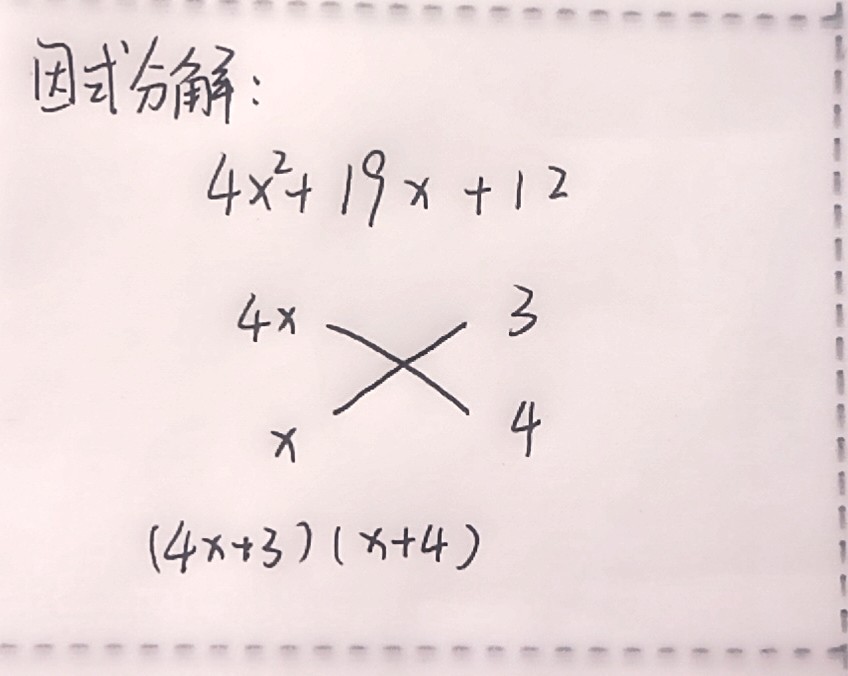 因式分解:
4x²+19x+12
4x 3
x 4
(4x+3)(x+4)